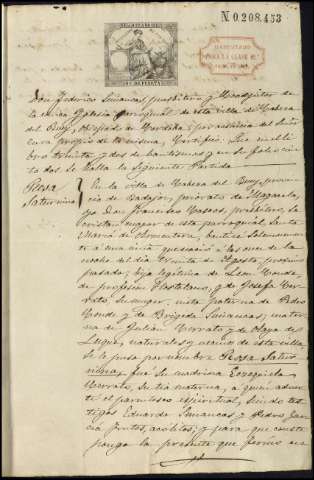 N 0.208,453
Don Federico Simancas, presbítero y Coadjutor de
la única Iglesia parroquial de esta villa de Cabeza
del Buey, Obispado de Córdoba, por ausencia del Señor
cura propio de la misma, Certifico: Que en el li-
bro treinta y dos de bautismos y en su folio cien-
to dos se halla la siguiente Partida
Rosa
Saturnina
En la villa de Cabeza del Buey, provin-
cia de Badajoz, priorato de Magacela,
yo Don Francisco presbítero,
mayor de esta parroquial Santa
María de Armentera, bauticé solemnemente
á una niña que nació á las once de la
noche del día treinta de Agosto, próximo
pasado; hija legítima de Leon Conde,
de profesion y de Josefa
su muger; nieta paterna de Pedro
Conde y de Brigida Simancas; mater-
na de Julian y de Olaya de
Luque, naturales y vecinos de esta villa
se le puso por nombre Rosa Satur-
nina; fue su madrina Ezequiela
su tia materna, á quien adver-
tí el parentesco espiritual, siendo tes-
tigos Eduardo Simancas y Pedro Gar-
cia acólitos; y para que conste
pongo la presente que firmo en